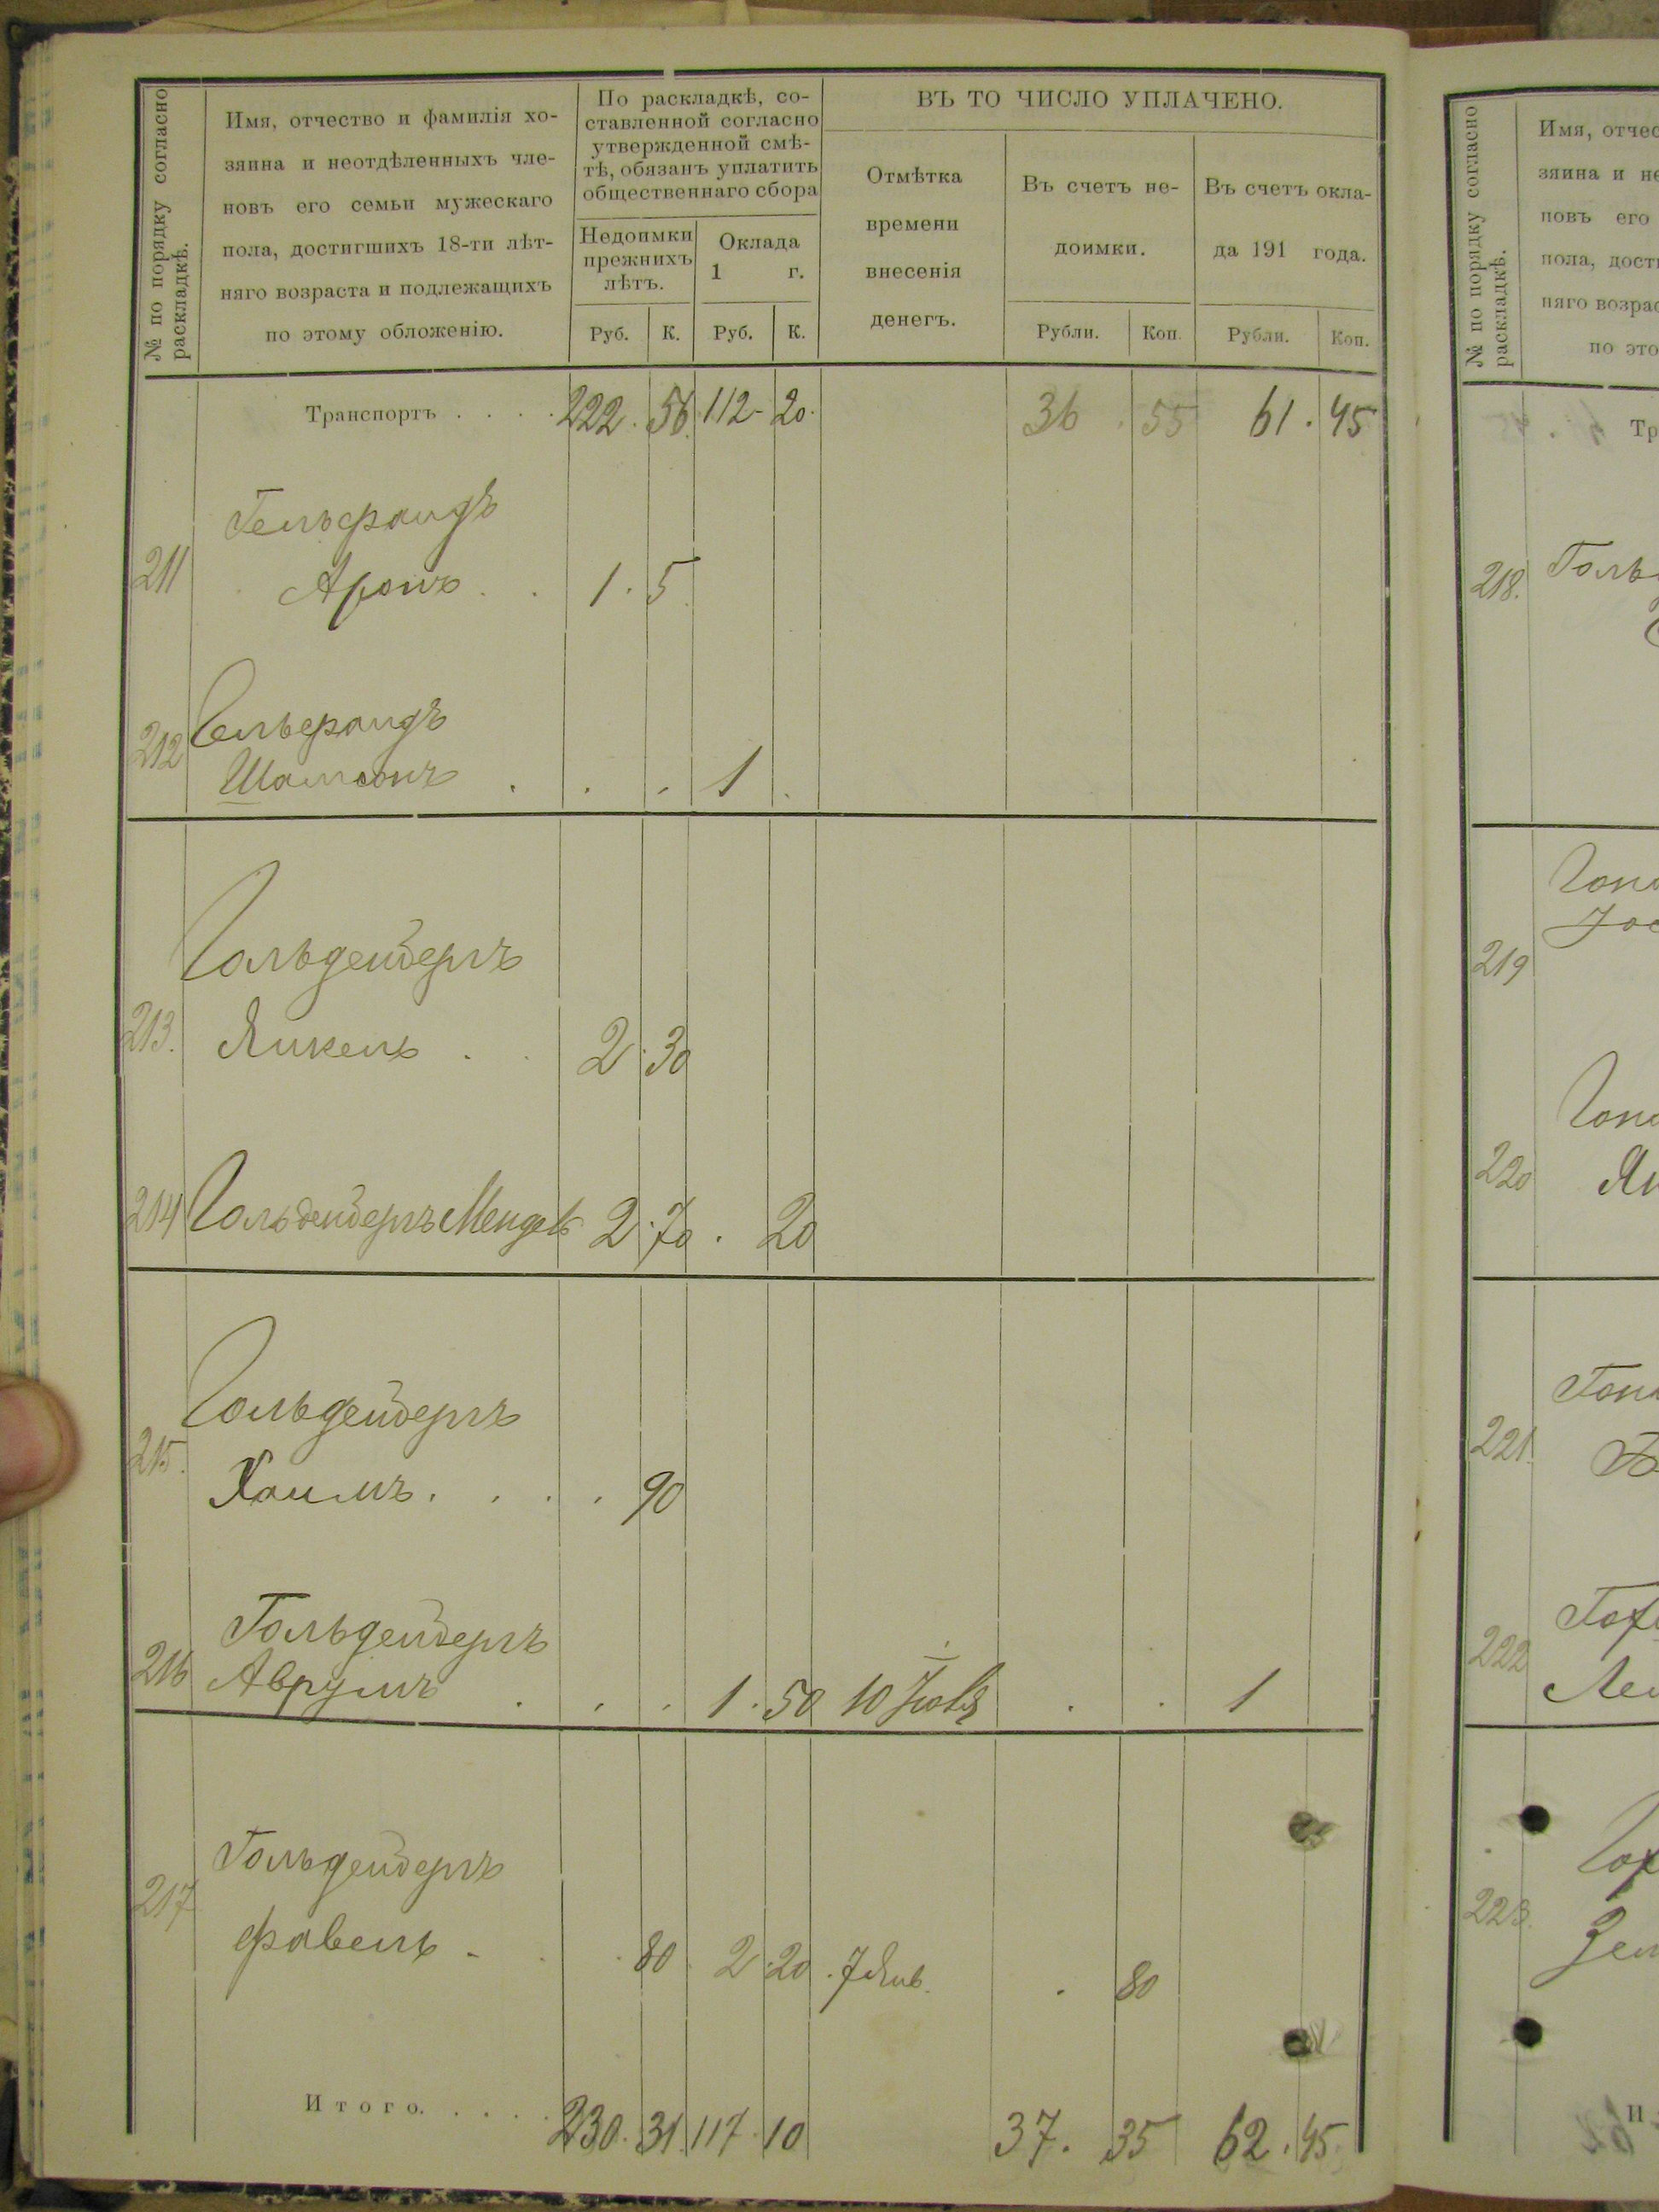 № по порядку согласно
раскладкѣ.
Имя, отчество и фамилія хо-
зяина и неотдѣленныхъ чле-
новъ его семьи мужескаго
пола, достигшихъ 18-ти лѣт-
няго возраста и подлежащихъ
по этому обложенію.
По раскладкѣ, со-
ставленной согласно
утвержденной смѣ-
тѣ, обязанъ уплатить
общественнаго сбора
Недоимки
прежнихъ
лѣтъ.
Оклада
1 г.
Руб. К. Руб. К.
ВЪ ТО ЧИСЛО УПЛАЧЕНО.
Отмѣтка
времени
внесенія
денегъ.
Въ счетъ не-
доимки.
Въ счетъ окла-
да 191 года.
Рубли. Коп. Рубли. Коп.
Транспортъ . . . . 222. 56. 112- 20. 36. 55 61. 45
Гельфандъ
211 Аронъ . . 1. 5.
Гельфандъ
212 Шамсонъ . . . 1 .
Гольденбергъ
213. Янкель . . 2. 30
214 Гольденбергъ Мендель 2. 70 . 20
Гольденбергъ
215. Хаимъ . . . . 90
Гольденбергъ
216 Аврумъ . . . 1. 50 10 Іюля . . 1
Гольденбергъ
217 Фавель - . . 80. 2. 20. 7 Янв. . 80
Итого. . . . . 230. 31. 117. 10 37. 35 62. 45
№ по порядку согласно
раскладкѣ.
Имя, отчес
зяина и не
новъ его
пола, дости
няго возрас
по это
Тр
218. Голь
219
220 Ян
221.
222
223.
И